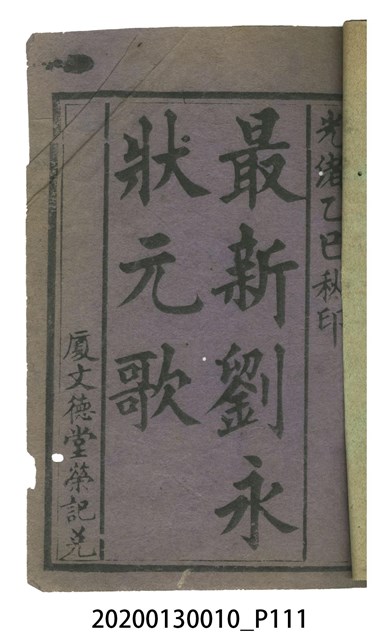 光緒乙巳秋印
最新劉永
狀元歌
廈文德堂榮記
20200130010_P111